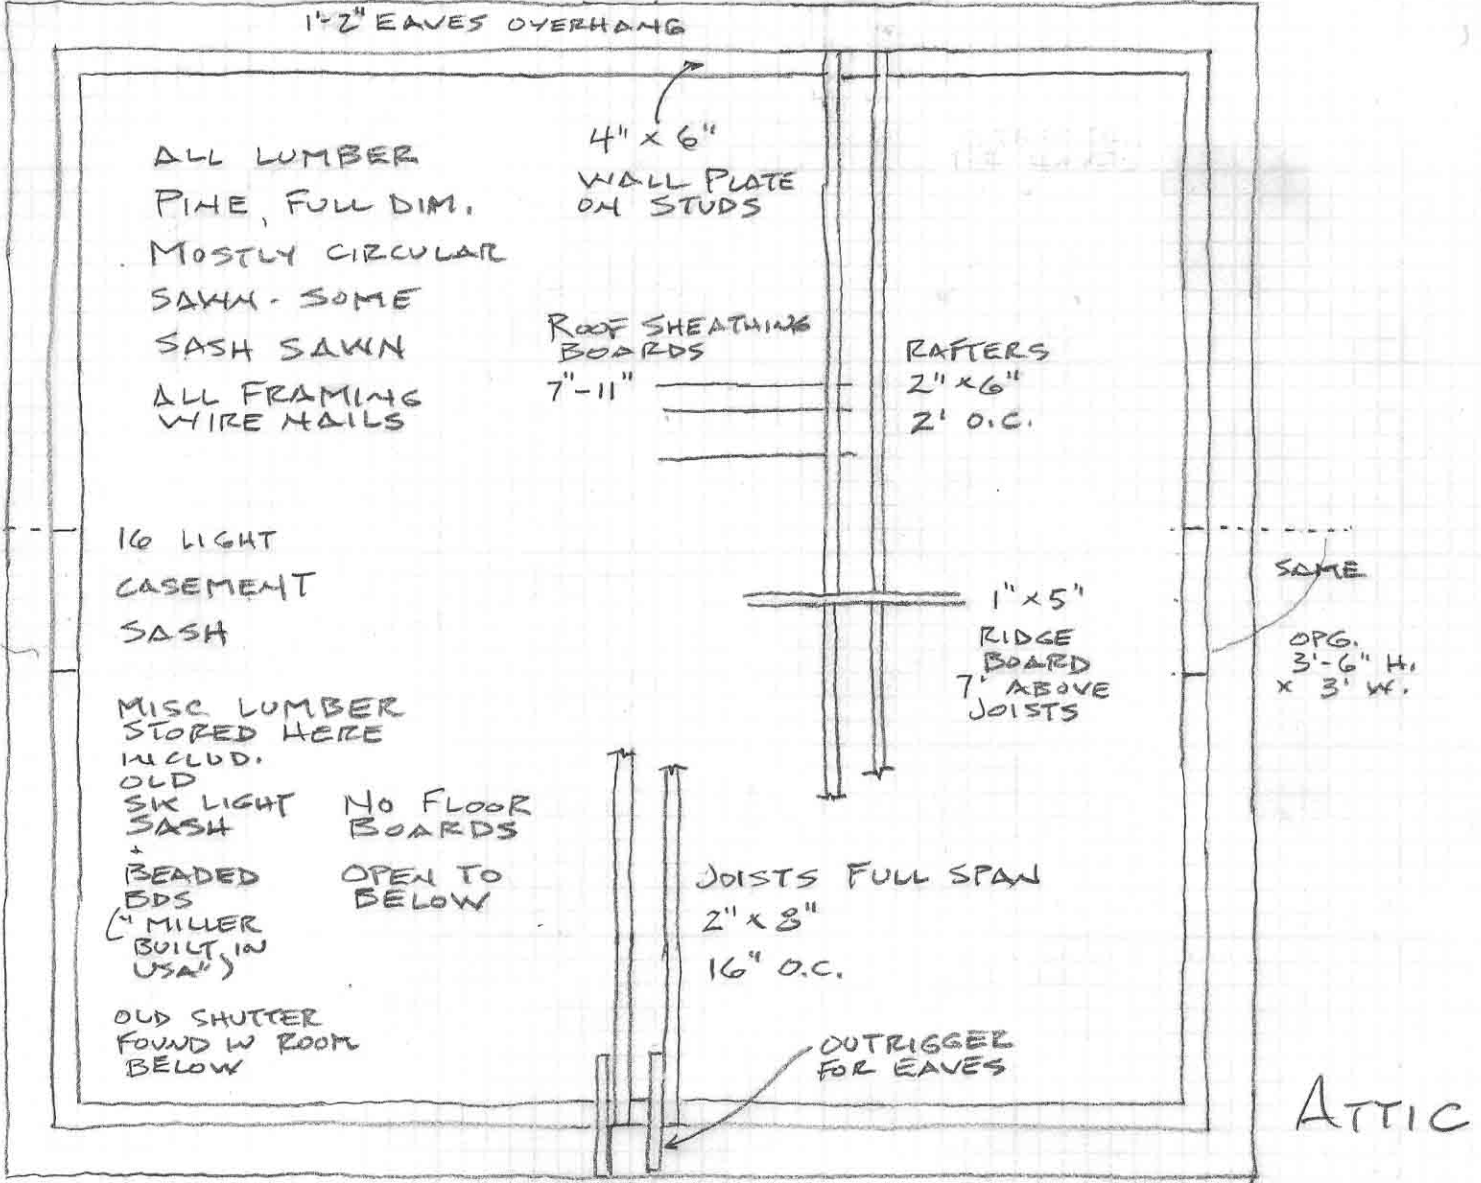 1'-2" EAVES OVERHANG
4" x 6"
WALL PLATE
ON STUDS
ALL LUMBER
PINE, FULL DIM.
MOSTLY CIRCULAR
SAWN - SOME
SASH SAWN
ALL FRAMING
WIRE NAILS
ROOF SHEATHING
BOARDS
7"-11"
RAFTERS
2" x 6"
2' O.C.
16 LIGHT
CASEMENT
SASH
1" x 5"
RIDGE
BOARD
7' ABOVE
JOISTS
SAME
OPG.
3'-6" H.
x 3' W.
MISC LUMBER
STORED HERE
INCLUD.
OLD
SIX LIGHT
SASH
+
BEADED
BDS
("MILLER
BUILT IN
USA")
NO FLOOR
BOARDS
OPEN TO
BELOW
JOISTS FULL SPAN
2" x 8"
16" O.C.
OLD SHUTTER
FOUND IN ROOM
BELOW
OUTRIGGER
FOR EAVES
ATTIC